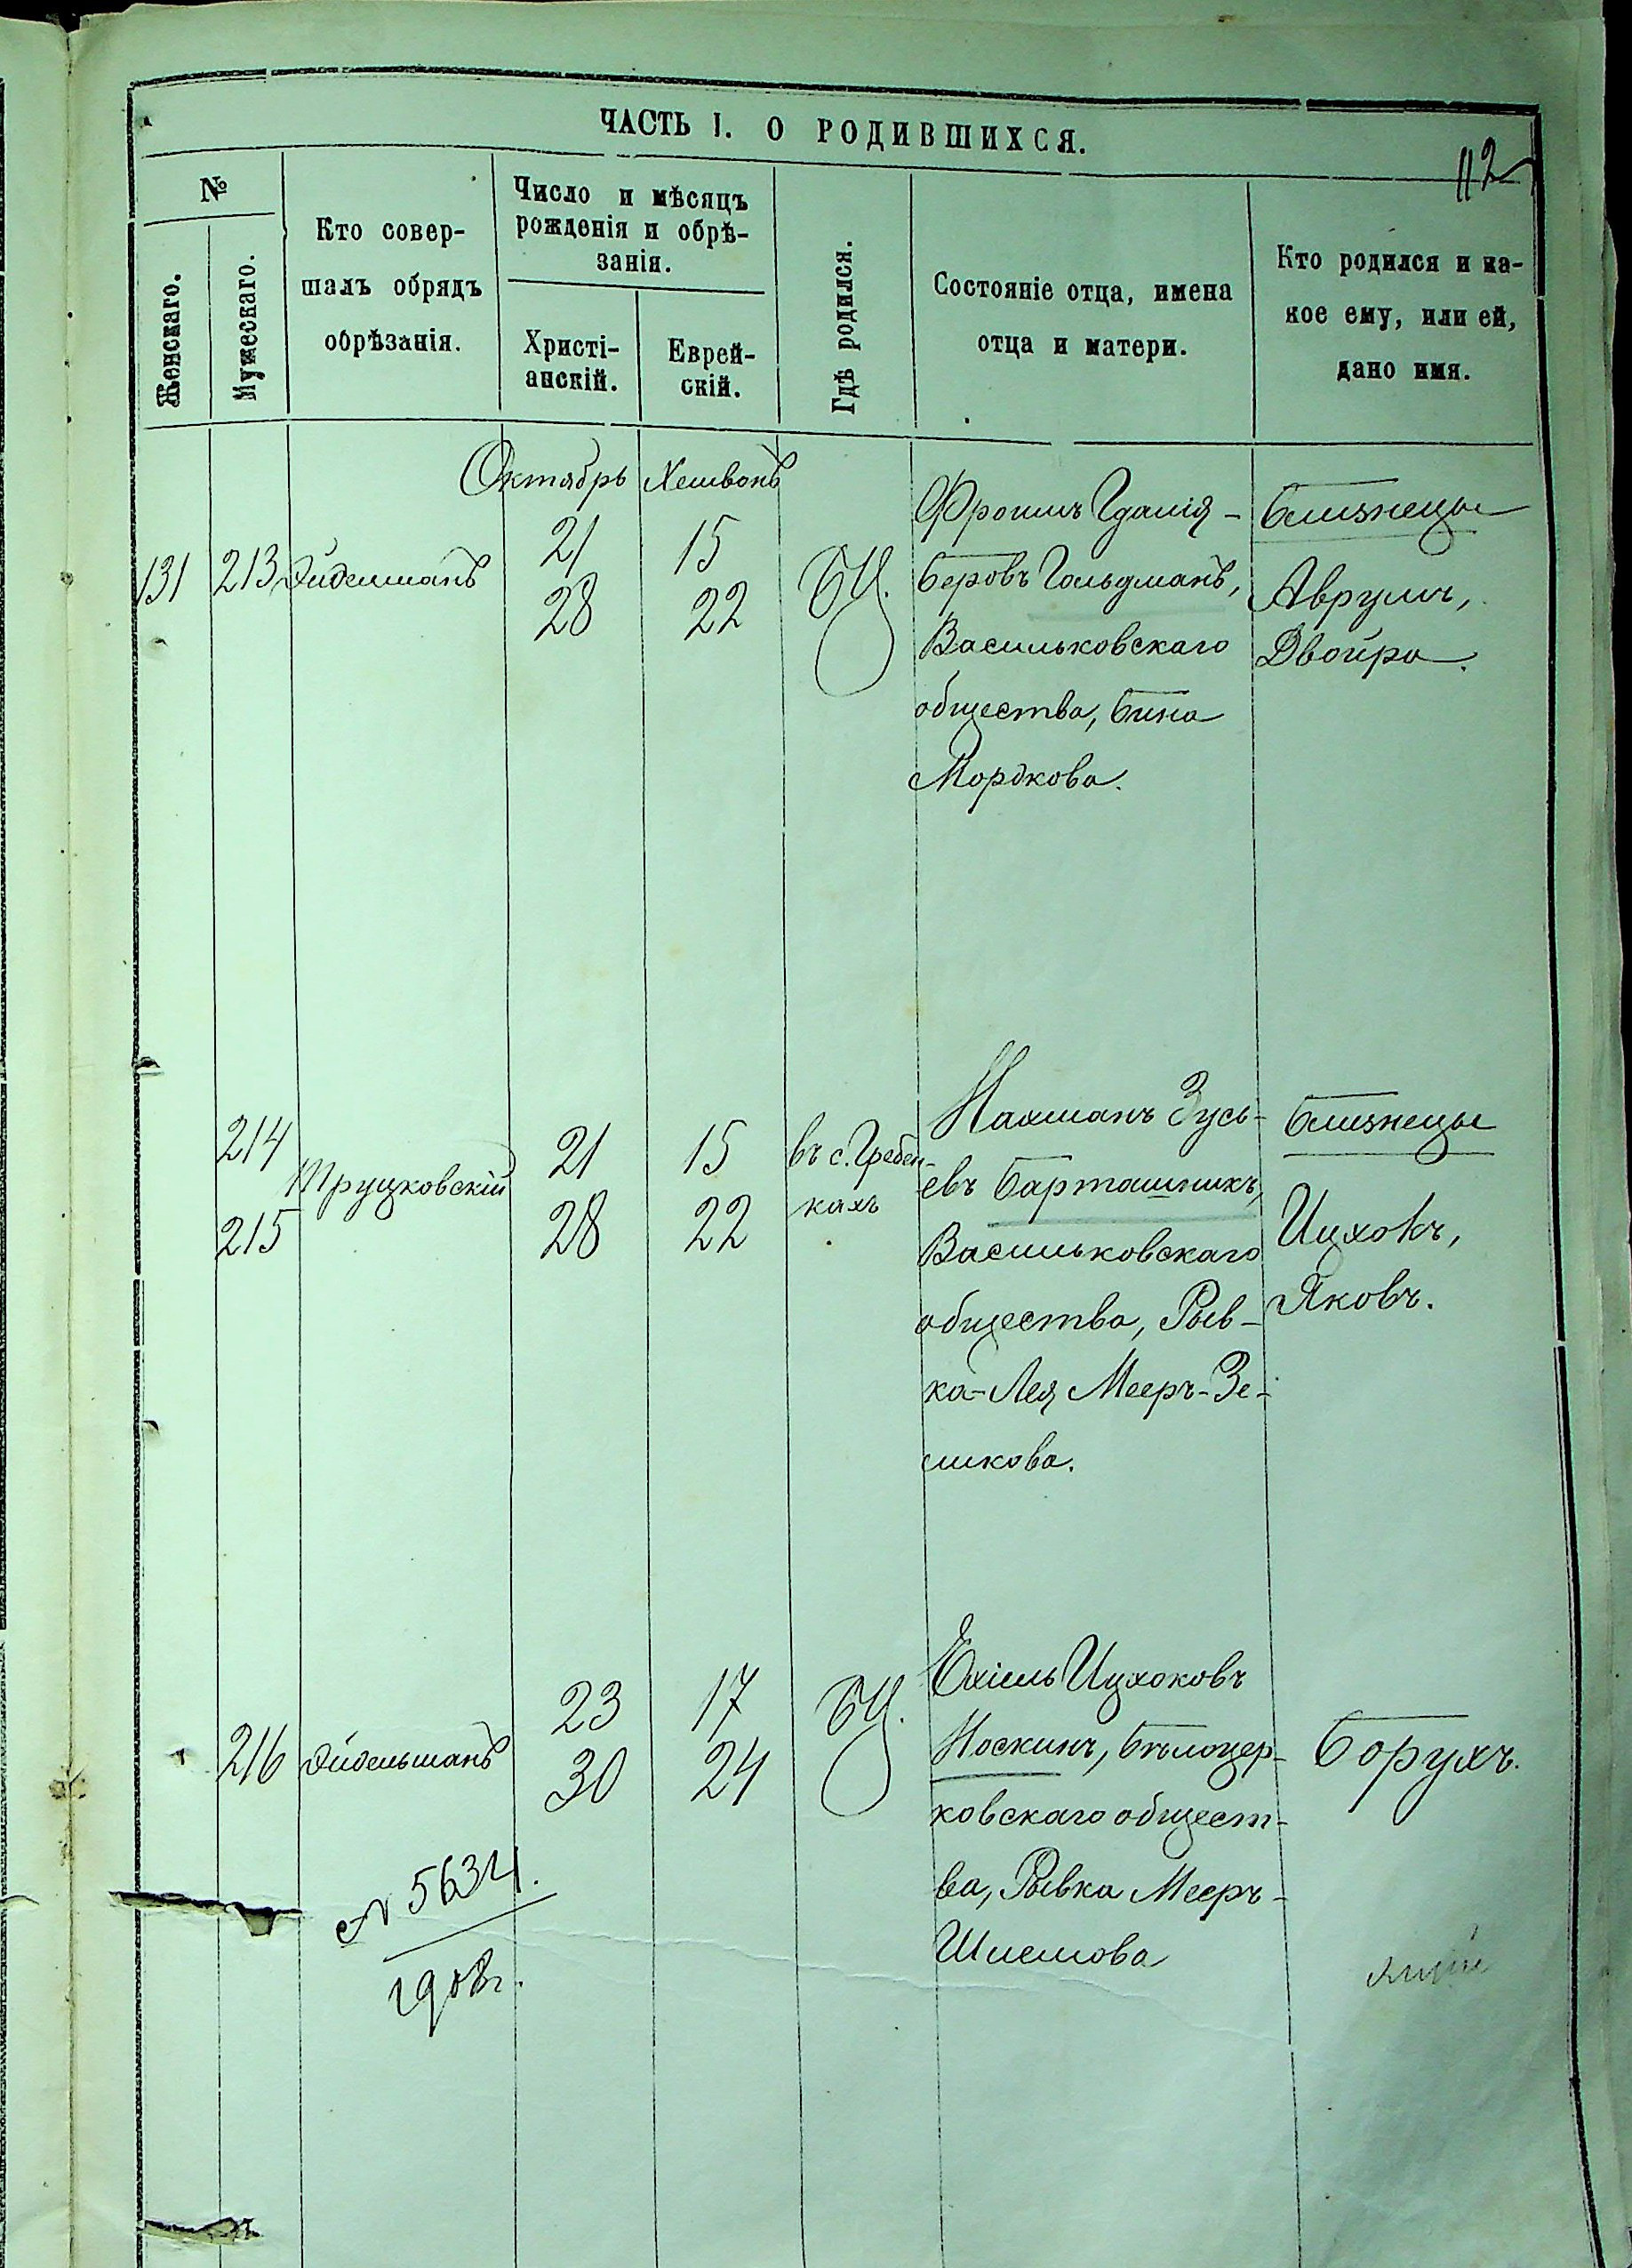 ЧАСТЬ I. О РОДИВШИХСЯ.
112
№
Женскаго.
Мужескаго.
Кто совер-
шалъ обрядъ
обрѣзанія.
Число и мѣсяцъ
рожденія и обрѣ-
занія.
Христі-
анскій.
Еврей-
скій.
Гдѣ родился.
Состояніе отца, имена
отца и матери.
Кто родился и ка-
кое ему, или ей,
дано имя.
Октябрь Хешвонъ
131 213 Эйдельманъ
21 15
28 22
БЦ.
Фроимъ Гдалія-
Беровъ Гольдманъ,
Васильковскаго
общества, Бина
Мордкова.
Близнецы
Аврумъ,
Двойра.
214
215
Труцковскій
21 15
28 22
въ с. Гребен-
кахъ
Нахманъ Зусь-
евъ Барташникъ,
Васильковскаго
общества, Рыв-
ка-Лея Мееръ-Зе-
ликова.
Близнецы
Ицхокъ,
Яковъ.
216 Эйдельманъ
23 17
30 24
БЦ.
Ехіель Ицхоковъ
Носкинъ, Бѣлоцер-
ковскаго общест-
ва, Рывка Мееръ-
Шлемова
Борухъ.
№ 5634.
1908г.